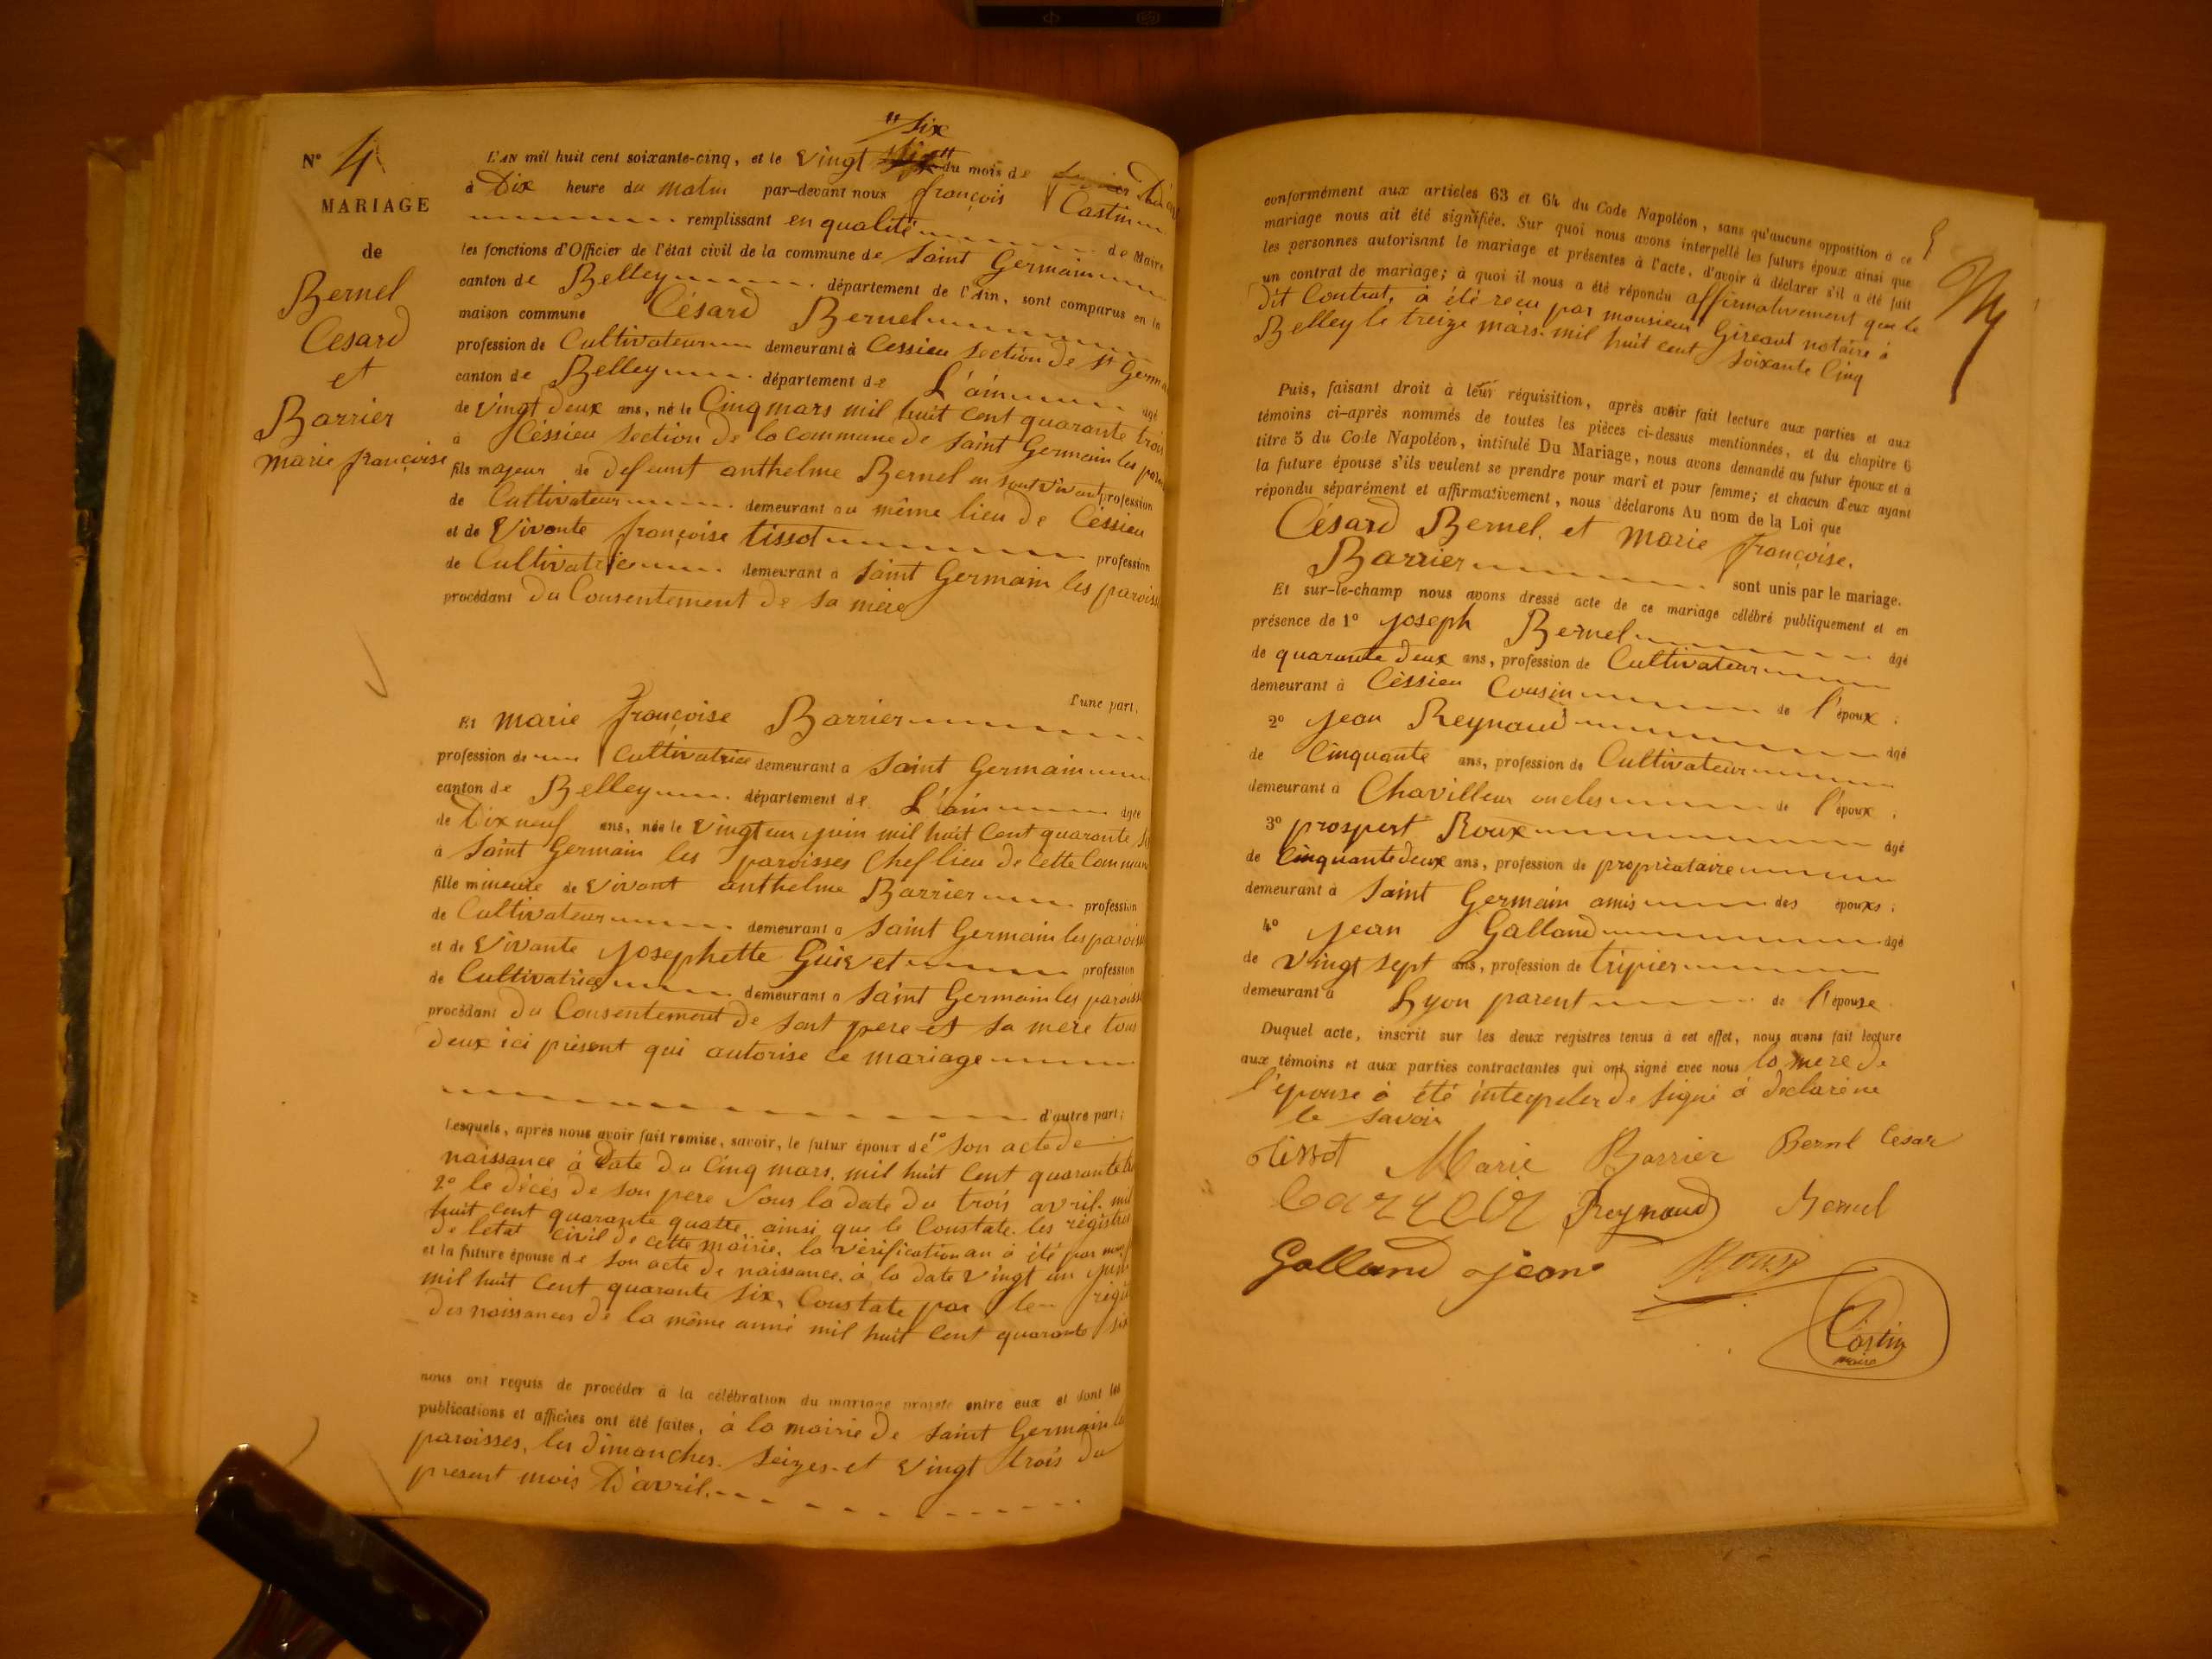 N° 4
MARIAGE
de
Bernel
Cesard
et
Barrier
marie françoise
"six
L'AN mil huit cent soixante-cinq, et le vingt six" du mois de
à Dix heure du matin par-devant nous françois Castin
remplissant en qualité de Maire
les fonctions d'Officier de l'état civil de la commune de Saint Germain
canton de Belley département de l'Ain, sont comparus en la
maison commune Césard Bernel
profession de Cultivateur demeurant à Cessieu Section de St Germ
canton de Belley département de L'ain âgé
de vingt deux ans, né le Cinq mars mil huit cent quarante trois
à Céssieu Section de la commune de Saint Germain les paro
fils majeur de defeunt anthelme Bernel en sont vivant profession
de Cultivateur demeurant au même lieu de Céssieu
et de Vivante françoise tissot profession
de Cultivatrice demeurant à Saint Germain les paroiss
procédant du Consentement de sa mère
d'une part,
Et marie françoise Barrier
profession de Cultivatrice demeurant à Saint Germain
canton de Belley département de L'ain âgée
de Dix neuf ans, née le vingt un juin mil huit cent quarante
à Saint Germain les paroisses Chef lieu de cette Commun
fille mineure de vivant anthelme Barrier profession
de Cultivateur demeurant à Saint Germain les paroiss
et de Vivante Josephette Guivet profession
de Cultivatrice demeurant à Saint Germain les paroiss
procédant du Consentement de sont pere et sa mere tous
deux ici présent qui autorise ce mariage
d'autre part;
Lesquels, après nous avoir fait remise, savoir, le futur époux de 1° son acte de
naissance à Date du Cinq mars, mil huit cent quarante
2° le décès de son pere sous la date du trois avril. mil
huit cent quarante quatre ainsi que le Constate. les régistres
de letat civil de cette mairie, la vérification an à été par
et la future épouse de son acte de naissance, à la date vingt un juin
mil huit cent quarante six, Constate par le
des naissances de la même anné mil huit cent quarante six
nous ont requis de procéder à la célébration du mariage projeté entre eux et dont les
publications et affiches ont été faites, à la mairie de Saint Germain les
paroisses, les dimanches. Seizes. et vingt trois du
present mois D'avril.
conformément aux articles 63 et 64 du Code Napoléon, sans qu'aucune opposition à ce
mariage nous ait été signifiée. Sur quoi nous avons interpellé les futurs époux ainsi que
les personnes autorisant le mariage et présentes à l'acte, d'avoir à déclarer s'il a été fait
un contrat de mariage; à quoi il nous a été répondu affirmativement que le
dit Contrat, à été recu par monsieur Gireaut notaire à
Belley le treize mars. mil huit cent soixante Cinq
Puis, faisant droit à leur réquisition, après avoir fait lecture aux parties et aux
témoins ci-après nommés de toutes les pièces ci-dessus mentionnées, et du chapitre 6
titre 5 du Code Napoléon, intitulé Du Mariage, nous avons demandé au futur époux et à
la future épouse s'ils veulent se prendre pour mari et pour femme; et chacun d'eux ayant
répondu séparément et affirmativement, nous déclarons Au nom de la Loi que
Césard Bernel. et Marie françoise.
Barrier sont unis par le mariage.
Et sur-le-champ nous avons dressé acte de ce mariage célébré publiquement et en
présence de 1° Joseph Bernel âgé
de quarante deux ans, profession de Cultivateur
demeurant à Céssieu Cousin de l'époux;
2° jean Reynaud âgé
de Cinquante ans, profession de Cultivateur
demeurant à Chavilleur oncles de l'époux;
3° prospert Roux âgé
de Cinquante deux ans, profession de propriétaire
demeurant à Saint Germain amis des époux;
4° jean Galland âgé
de vingt sept ans, profession de tripier
demeurant à Lyon parent de l'épouse
Duquel acte, inscrit sur les deux registres tenus à cet effet, nous avons fait lecture
aux témoins et aux parties contractantes qui ont signé avec nous la mere de
l'épouse à été interpeler de signé à declaré ne
le savoir
tissot Marie Barrier Bernl César
barrier Reynaud Bernel
Galland jean Roux
Castin
maire